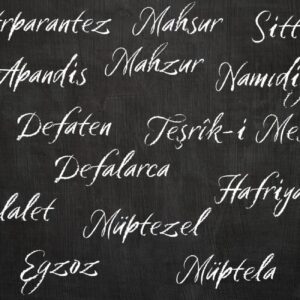 rparantez Mahsur Sitt
Apandis Mahzur Namıdi
Defaten Teşrîk-i Me
Defalarca
Hafriya
lalet Müptezel
Egzoz Müptela